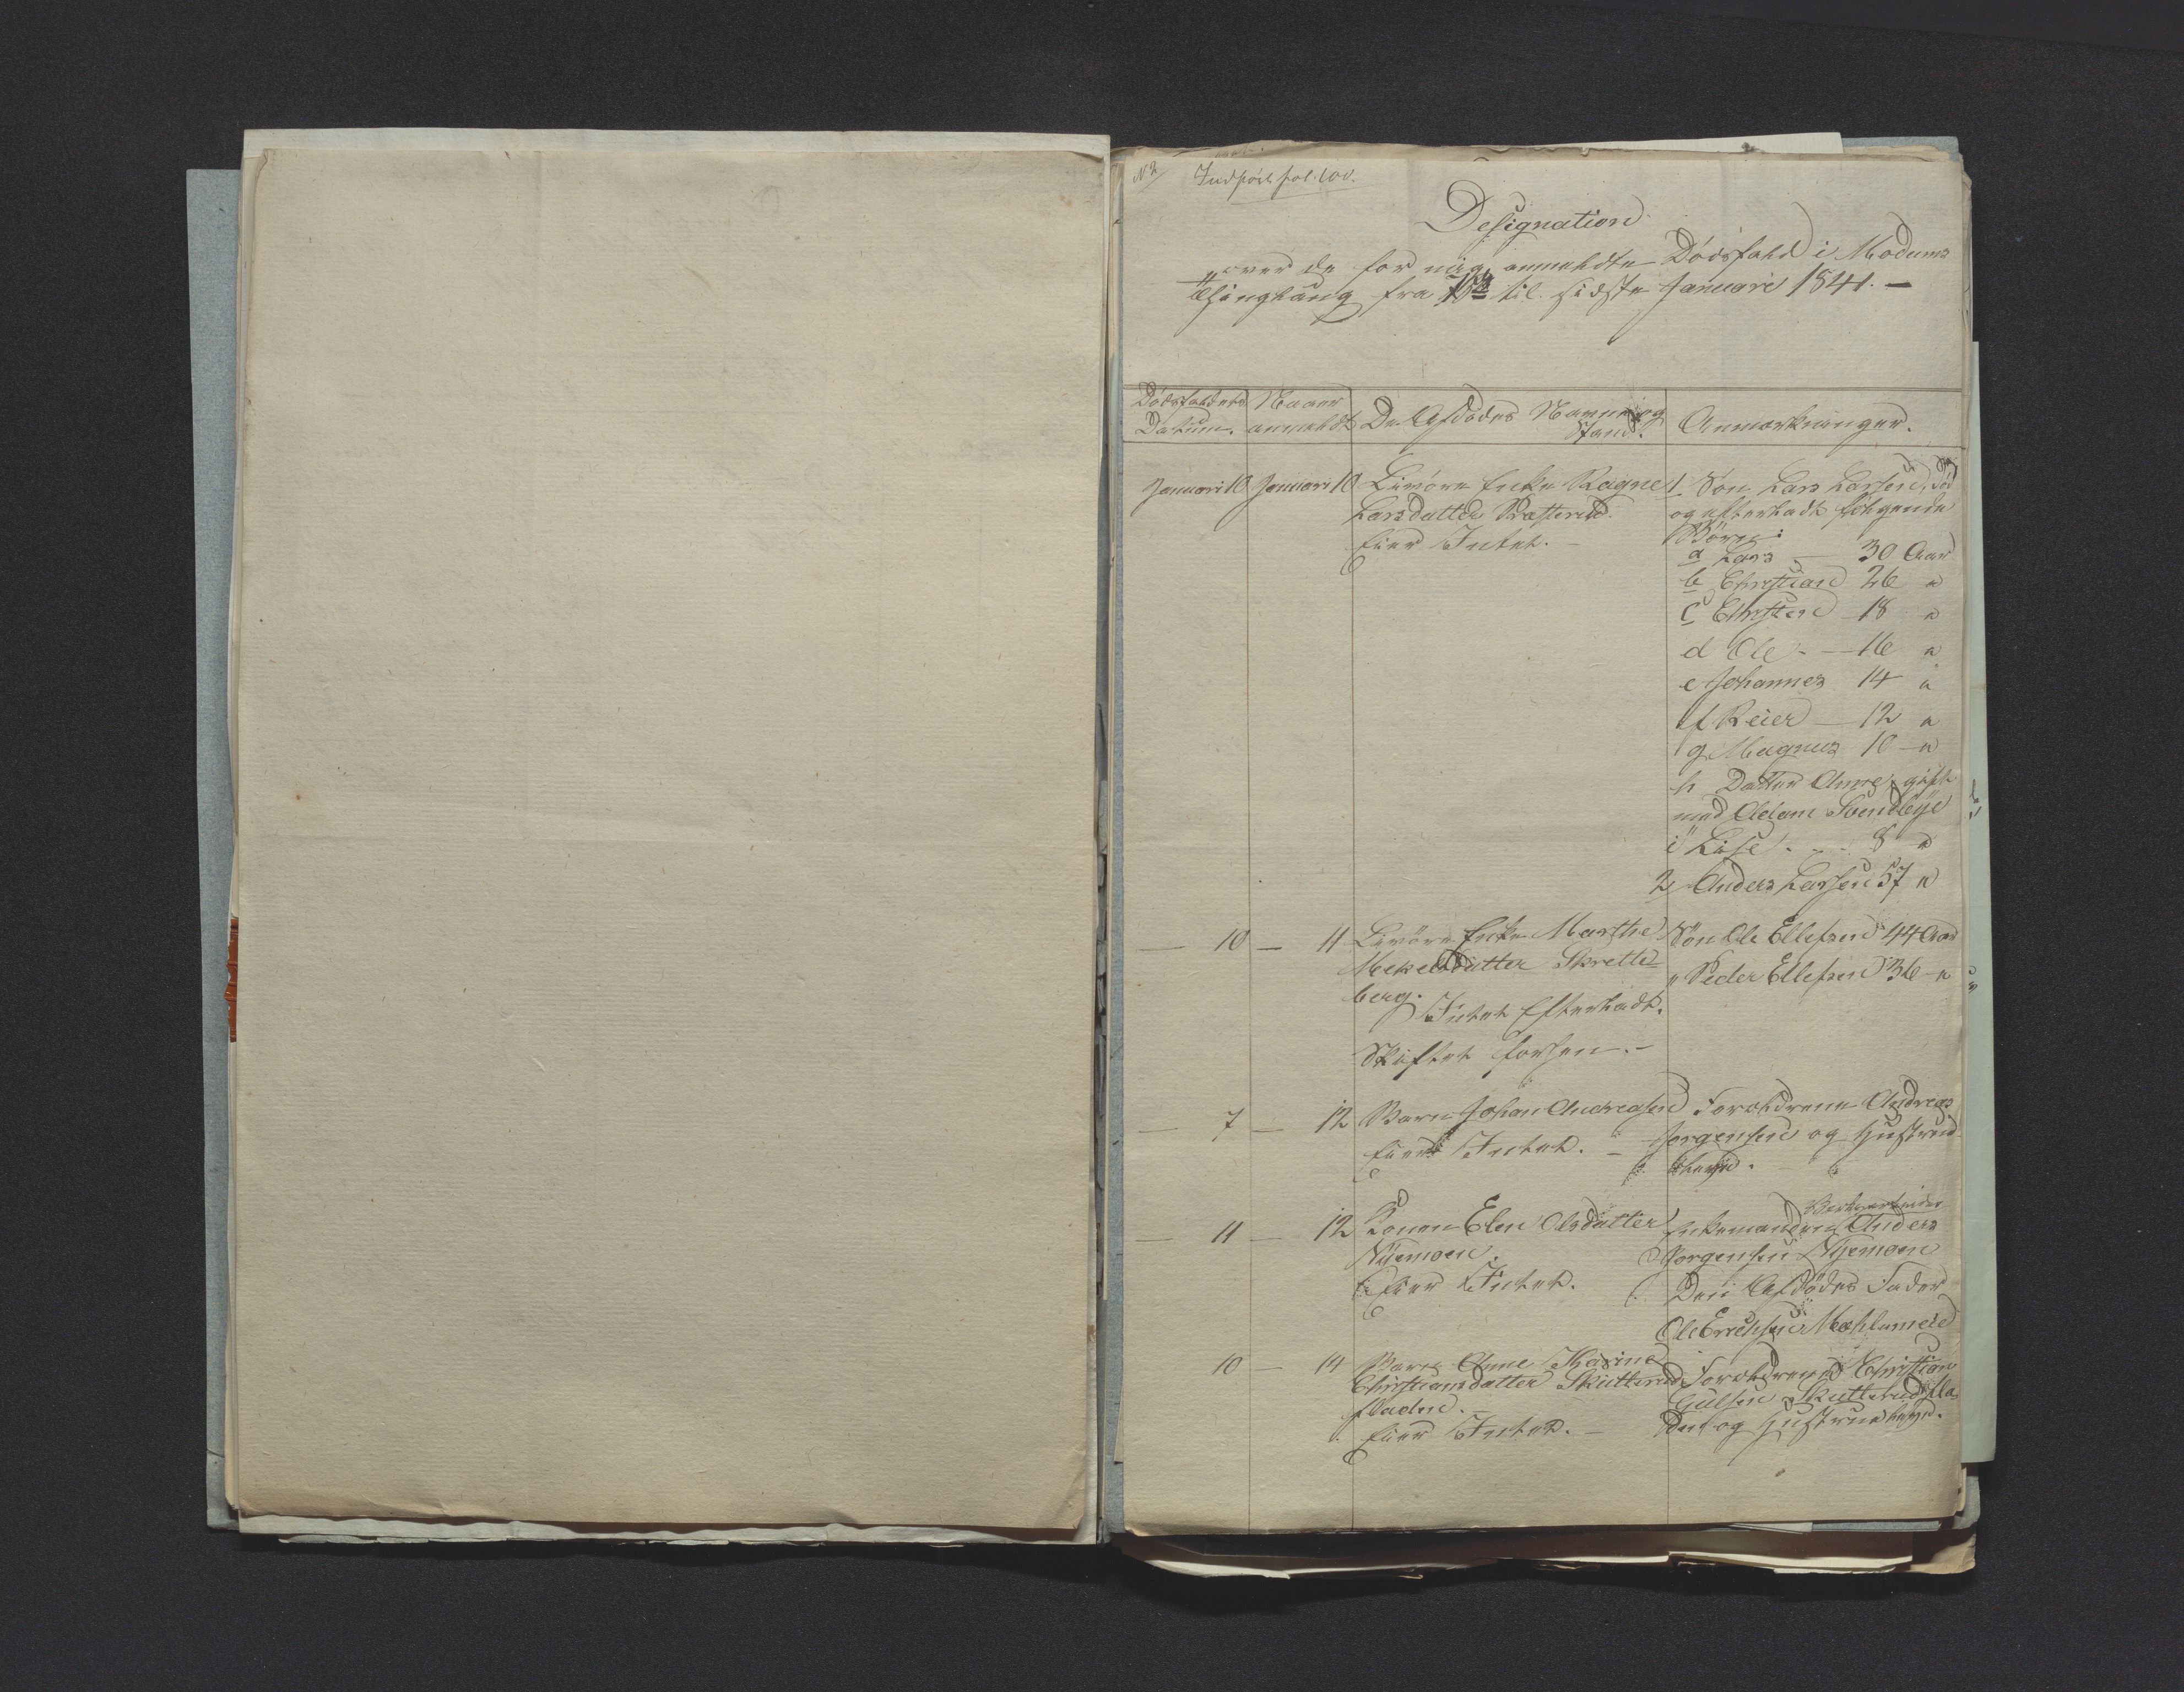 N 2/ Indført fol. 100.
Designation
over de for mig anmeldte Dödsfald i Modums
Thinglaug fra 1ste til sidste Januari 1841. —
Dödsfaldets Datum.
Naar anmeldt
De Afdödes Navne og Stand.
Anmærkninger.
Januari 10 Januari 10 Livöre Enke Ragne
Larsdatter Præsterud.
Eier Intet. —
1 Søn Lars Larsen, död
og efterladt fölgende
Börn:
a Lars — 30 Aar
b Christian 26 "
c Christen 18 "
d Ole - — 16 "
e Johannes 14 "
f Reier — 12 "
g Magnus 10 — "
h Datter Anne, gift
med Adam Svendbye
i Lise - - - 8 "
2 Anders Larsen 57 "
— 10 — 11 Livöre Enke Marthe
Mekelsdatter Skrette-
berg.
Intet Efterladt.
Skiftet forsen. —
Søn Ole Ellefsen 44 Aar
" Peder Ellefsen 36 — "
— 7 — 12 Barn Johan Andreasen
Eier Intet. —
Forældrene Andreas
Jørgensen og Hustrue
— 11 — 12 Konen Elen Olsdatter
Nyemoen.
Eier Intet.
Enkemanden Anders
Jorgensen Nyemoen
Den Afdödes Fader
Ole Erichsen
10 — 14 Barn Anne Karine
Christiansdatter Skutterud
fladen. —
Eier Intet. —
Forældrene Christian
Gulsen Skutterudfla
den og Hustrue